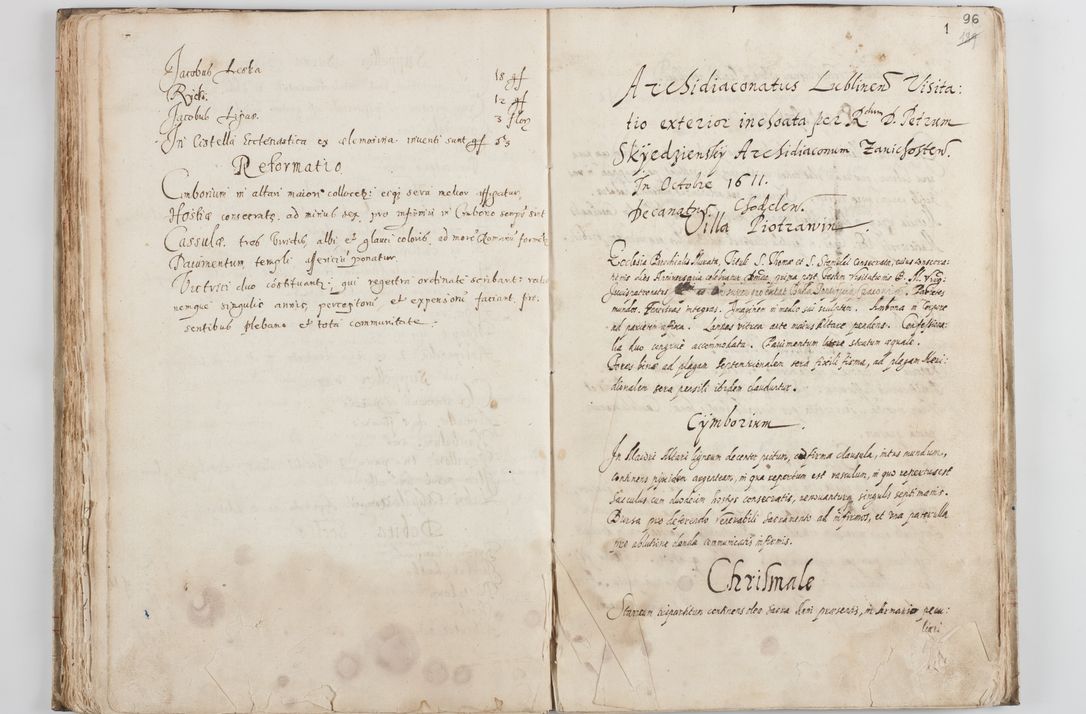 Jacobus Leska 18 gf
Rycki 12 gf
Jacobus Lipus. 3 flor
In Castella Ecclesiastica ex elemosina inventi sunt gf
Reformatio
Cimborium in altari maiori collocet: eiq; sera melior affigatur
Hostiæ consecratæ, ad minus sex, pro infirmis in Cimborio semper sint
Cassulæ, tres Viridis, albi et glauci coloris, ad more Romanu
Pavimentum templi ponatur.
Vitrici duo constituant: qui regestri ordinate scribant: ratio
nemque singulis annis, perceptoru et expensoru faciant, pre
sentibus Plebano et tota communitate.
1 96
189
Archidiaconatus Lublinen Visita:
tio exterior inchoata per Rdum D. Petrum
Skyedziensky Archidiaconum Zanichosten.
In Octobre 1611.
Decanatus Chodelen.
Villa Piotrawin
Ecclesia Parochialis Murata, Tituli S. Thomæ et S. Stanislai consecrata, cuius
prima post festum Visitationis B. M. Virg:
Jurispatronatus Parietes
mundos. Fenestras integras. Imaginem in medio sui sculptam. Ambona in Corpore
ad parietem affixa. Lampas vitrea ante maius Altare pendens. Confessiona:
lia duo congrue accommodata. Pavimentum latere stratum æquale.
Fores binæ ad plagam Septentrionalem sera fixili firma, ad plagam Meri:
dianalem sera pensili ibidem clauduntur.
Cymborium.
In Maiori Altari ligneum decenter pictum, cu firma clausula, intus mundum,
continens pixidem argenteam, in qua repertum est vasculum, in quo repertus est
Sacculus cum duodecim hostiis consecratis, renovantur singulis septimanis.
Bursa pro deferendo venerabili Sacramento ad infirmos, et una paterulla
pro ablutione danda communicatis infirmis.
Chrismale
Stanneum tripartitum continens olea Sacra Anni præsentis, in Armario pecu:
liari